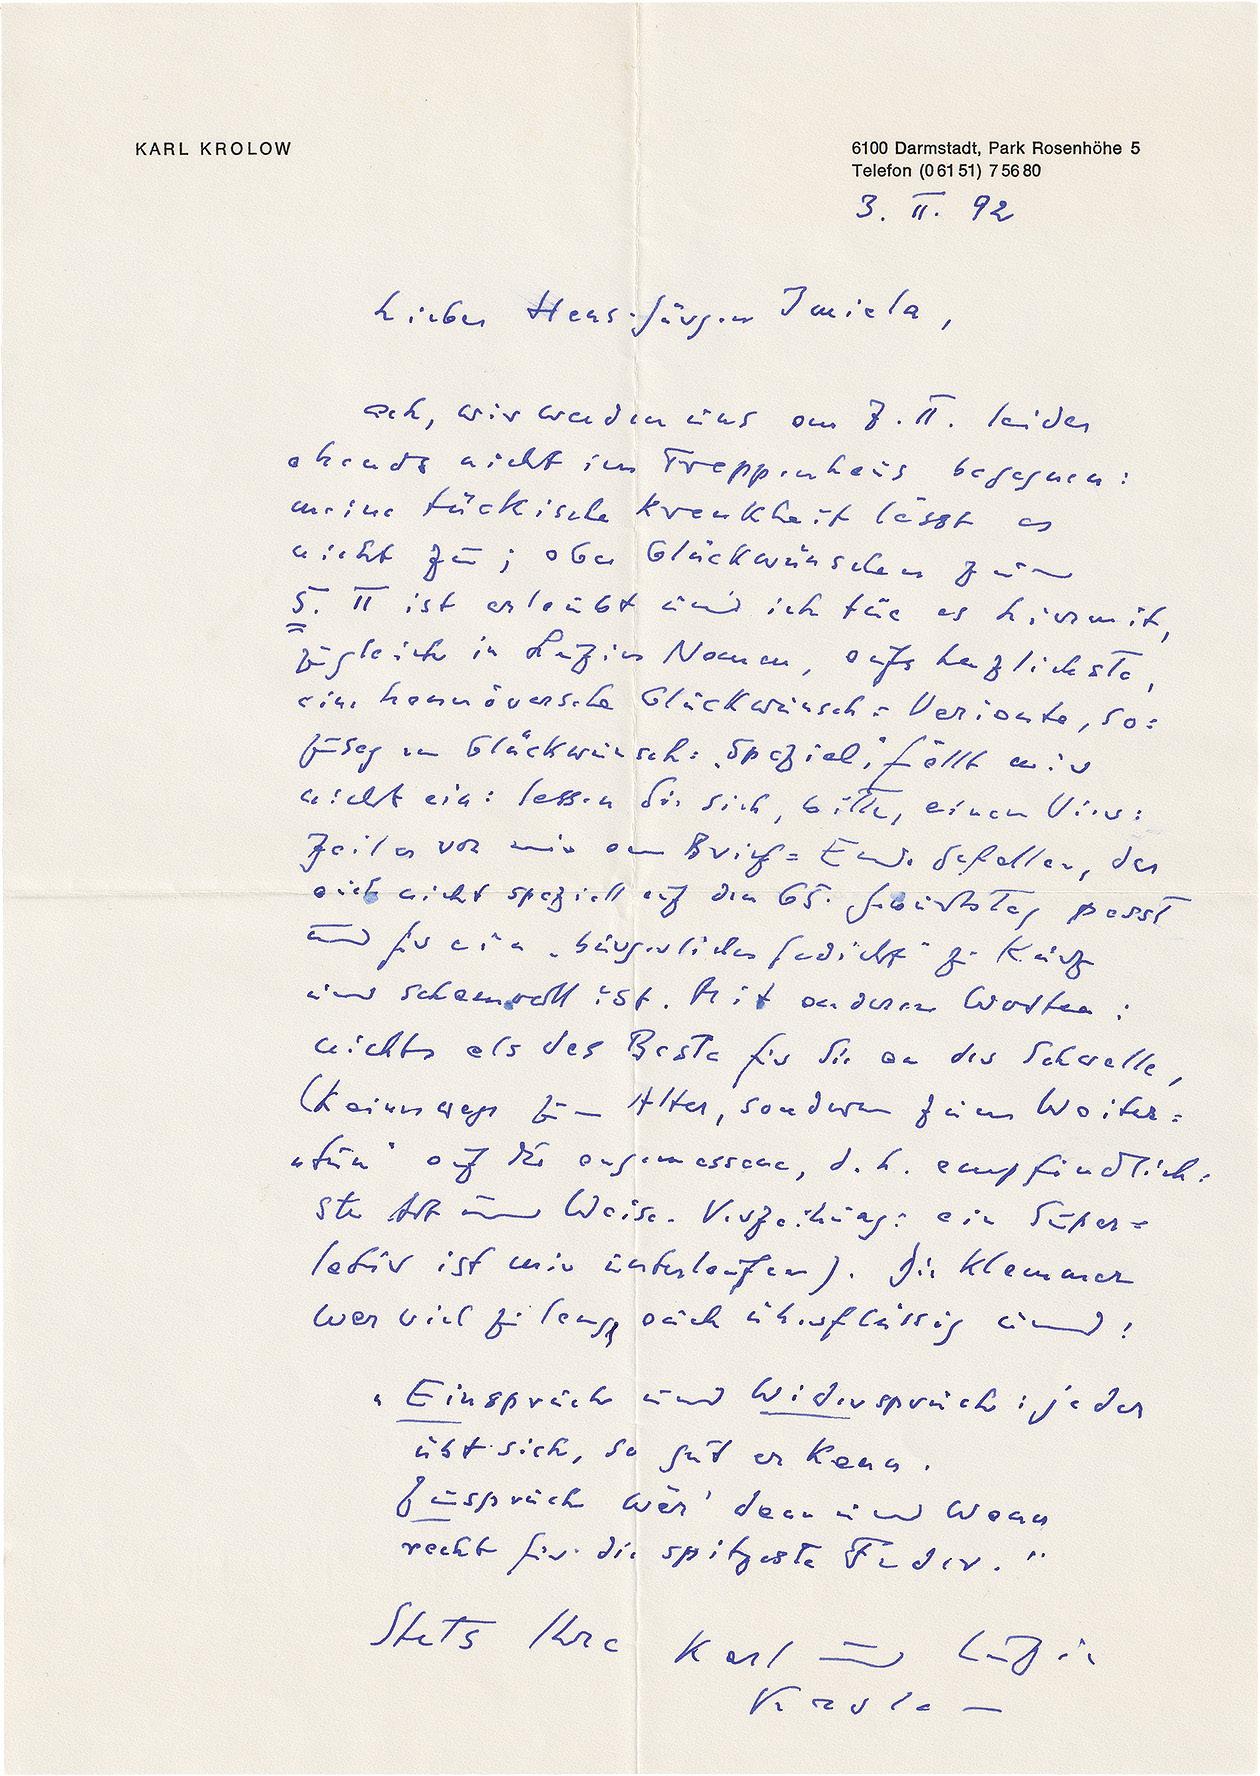 KARL KROLOW
6100 Darmstadt, Park Rosenhöhe 5
Telefon (0 61 51) 7 56 80
3. II. 92
Lieber Hans-Jürgen Imiela,
ach, wir werden uns am 7. II. leider
abends nicht im Treppenhaus begegnen:
meine tückische Krankheit lässt es
nicht zu; aber Glückwünschen zum
5. II ist erlaubt und ich tue es hiermit,
zugleich in Luzies Namen, aufs herzlichste,
eine hannöversche Glückwunsch=Variante, so=
zusagen Glückwunsch= „Spezial", fällt mir
nicht ein: lassen Sie sich, bitte, einen Vier=
zeiler von mir am Brief=Ende gefallen, der
auch nicht speziell auf den 65. Geburtstag passt
und für ein „bürgerliches Gedicht" zu kurz
und schamvoll ist. Mit anderen Worten:
nichts als das Beste für Sie an der Schwelle,
(keineswegs zum Alter, sondern zum Weiter=
„tun" auf die angemessene, d. h. empfindlich=
ste Art und Weise. Verzeihung: ein Super=
lativ ist mir unterlaufen). Die Klammer
war viel zu lang, auch überflüssig und:
„Einspruch und Widerspruch: jeder
übt sich, so gut er kann.
Zuspruch wär' dann und wann
recht für die spitzeste Feder."
Stets Ihre Karl und Luzie
Krolow